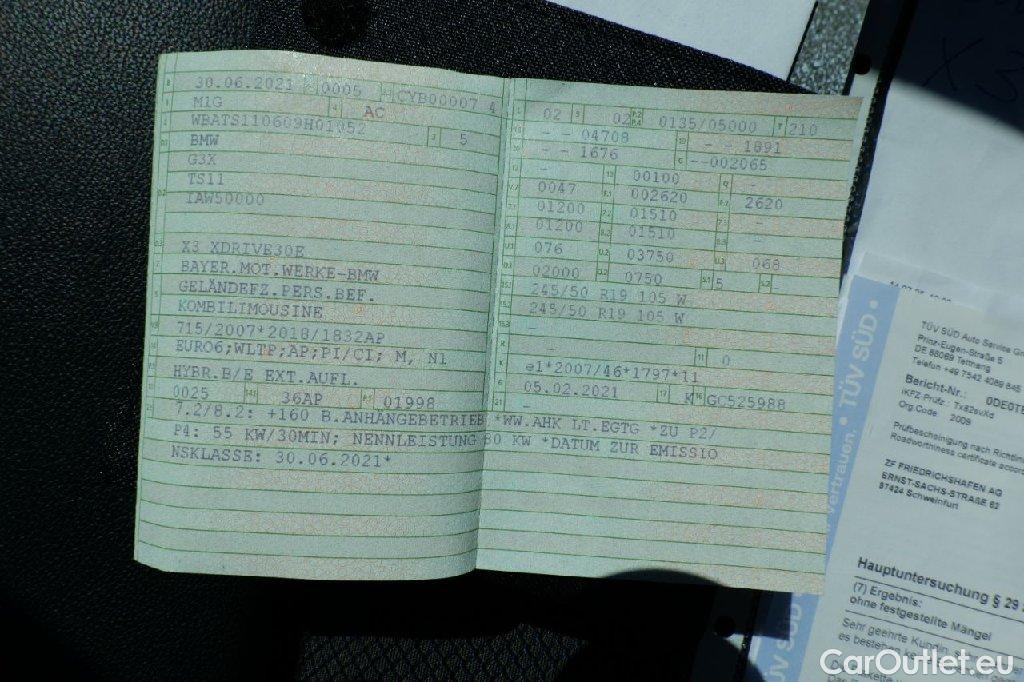 30.06.2021 0005 CYB00007 4
M1G AC
WBATS110609H01052 5
BMW
G3X
TS11
IAW50000
X3 XDRIVE30E
BAYER.MOT.WERKE-BMW
GELÄNDEFZ.PERS.BEF.
KOMBILIMOUSINE
715/2007*2018/1832AP
EURO6;WLTP;AP;PI/CI; M, N1
HYBR.B/E EXT.AUFL.
0025 36AP 01998
7.2/8.2: +160 B.ANHÄNGEBETRIEB *WW.AHK LT.EGTG *ZU P2/
P4: 55 KW/30MIN; NENNLEISTUNG 80 KW *DATUM ZUR EMISSIO
NSKLASSE: 30.06.2021*
02 02 0135/05000 210
- - 04708 - - 1891
- - 1676 --002065
- 00100 -
0047 002620 2620
01200 01510 -
01200 01510 -
076 03750 068
02000 0750 5
245/50 R19 105 W
245/50 R19 105 W
-
- 0
e1*2007/46*1797*11
05.02.2021 K GC525988
-
TÜV SÜD • TÜV SÜD •
vertrauen.
TÜV SÜD
TÜV SÜD Auto Service
Prinz-Eugen-Straße 5
DE 88069 Tettnang
Telefon +49 7542 4089 846
Bericht-Nr.:
Org.Code 2009
Prüfbescheinigung nach
Roadworthiness certificate
ZF FRIEDRICHSHAFEN AG
ERNST-SACHS-STRAßE 62
97424 Schweinfurt
Hauptuntersuchung § 29
(7) Ergebnis:
ohne festgestellte Mängel
Sehr geehrte Kundin,
es bestehen
CarOutlet.eu